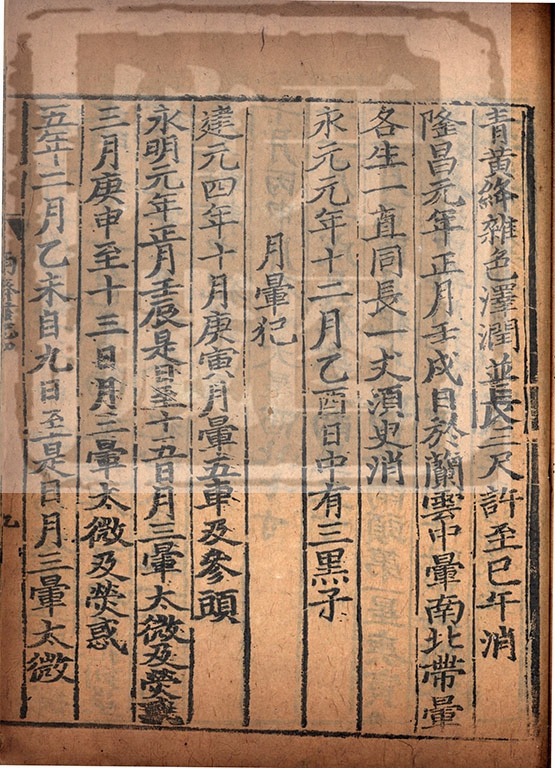 青黃絳雜色澤潤並長三尺許至巳午消
隆昌元年正月壬戌日於蘭雲中暈南北帶暈
各生一直同長一丈須臾消
永元元年十二月乙酉日中有三黑子
月暈犯
建元四年十月庚寅月暈五車及參頭
永明元年正月壬辰是日至十五日月三暈太微及熒惑
三月庚申至十三日月三暈太微及熒惑
五年二月乙未自九日至是日月三暈太微